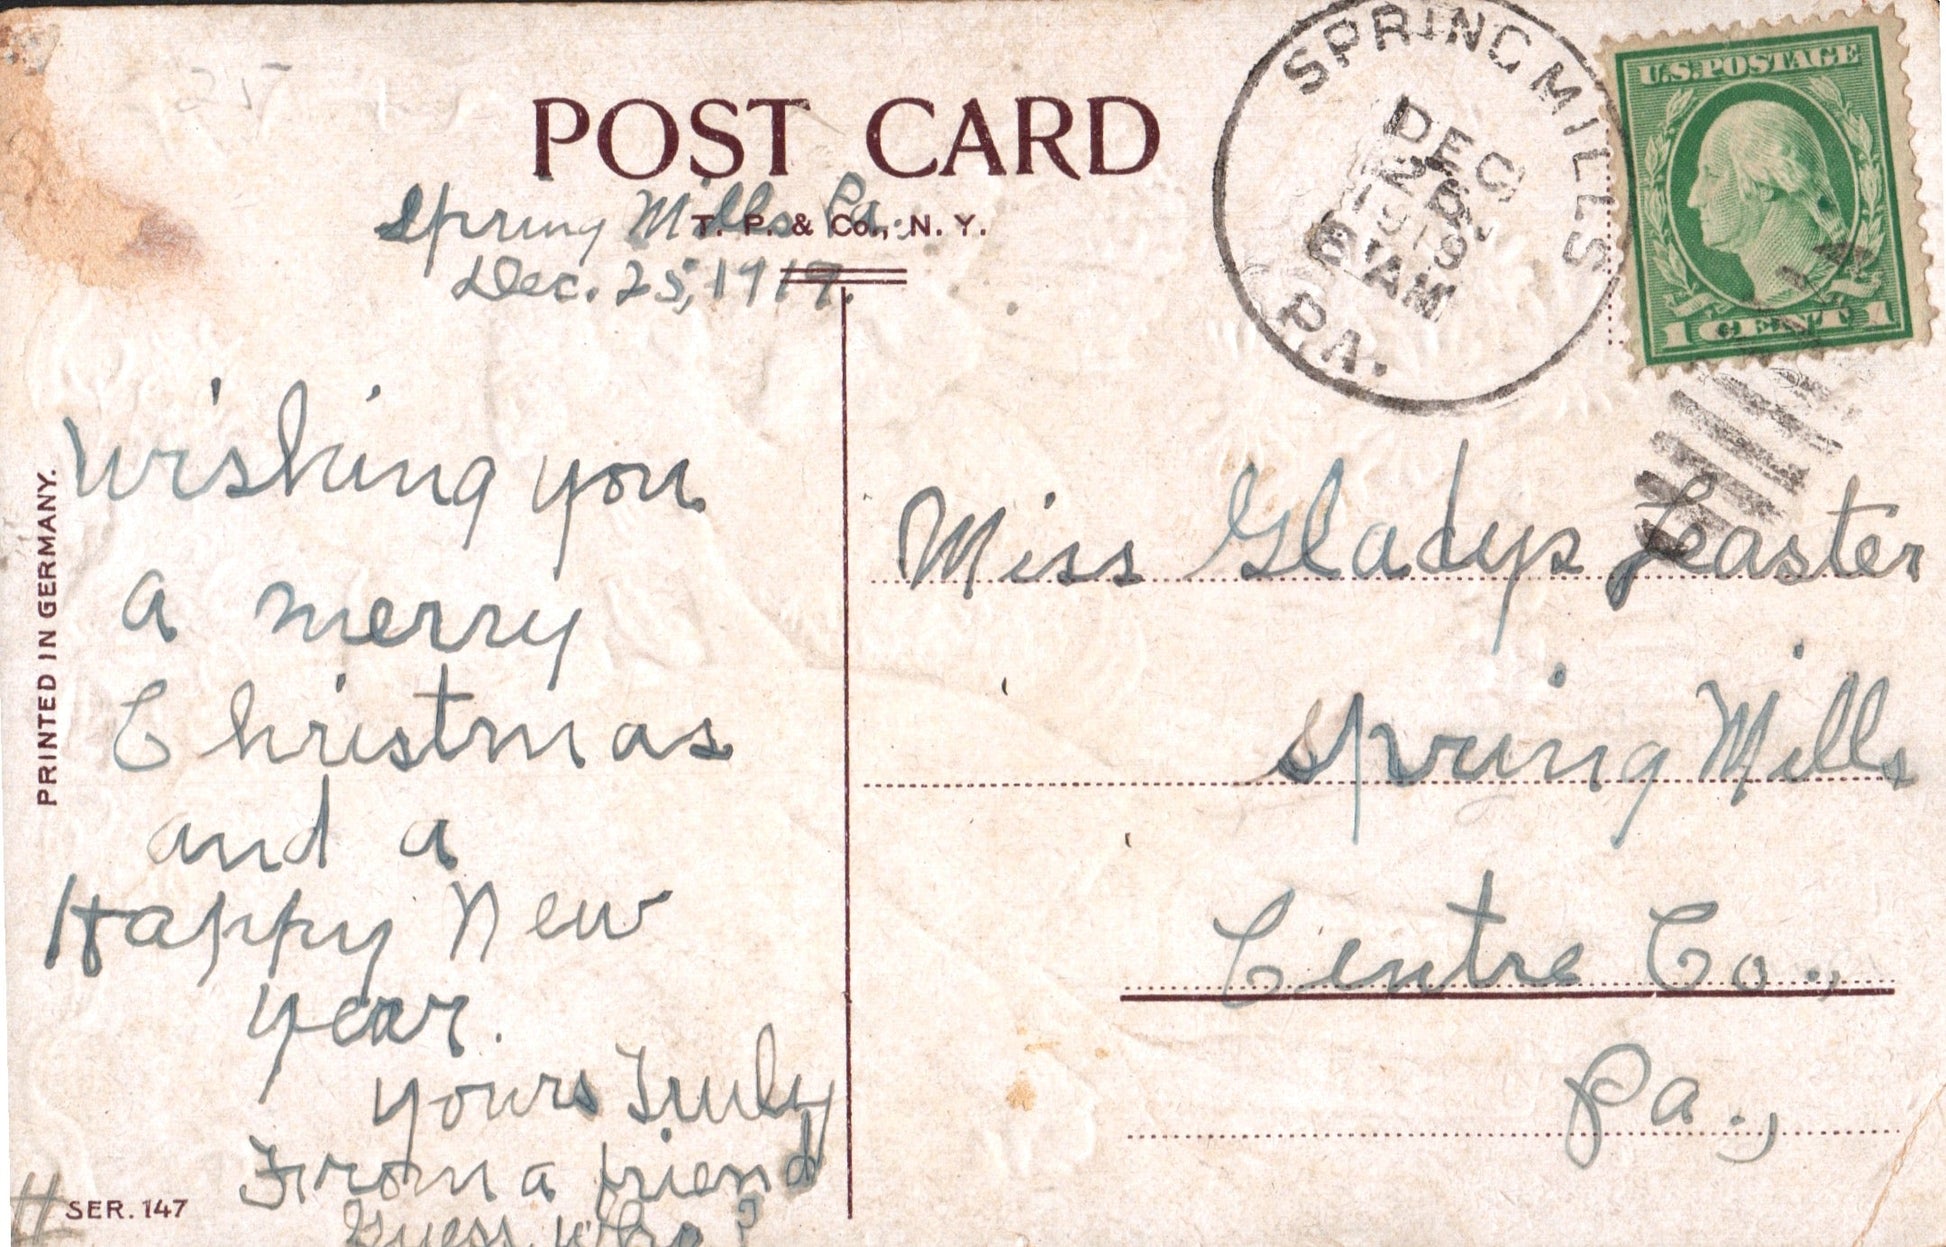 POST CARD
T. P. & Co., N. Y.
Spring Mills Pa.
Dec. 25, 1919.
Wishing you
a merry
Christmas
and a
Happy New
year.
yours Truly
From a friend
Guess Who?
PRINTED IN GERMANY.
# SER. 147
SPRING MILLS
DEC
26
1919
6 AM
PA.
U.S. POSTAGE
1 CENT 1
Miss Gladys Leaster
Spring Mills
Centre Co.,
Pa.,